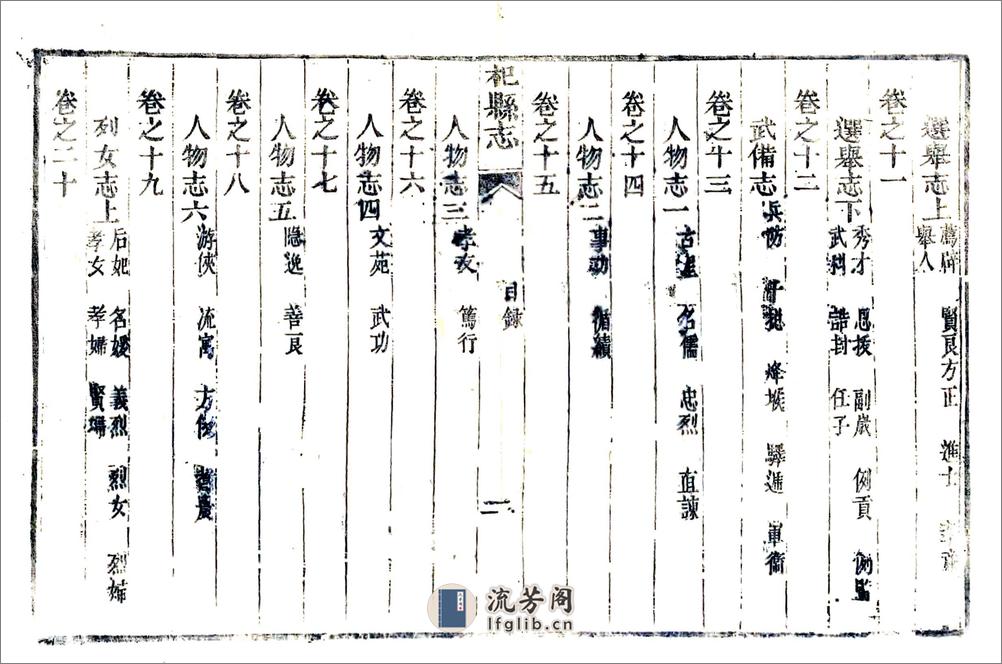 選舉志上 薦辟 賢良方正 進士
舉人
卷之十一
選舉志下 秀才 恩拔 副歲 例貢 例監
武科 誥封 任子
卷之十二
武備志 兵防 烽堠 驛遞 軍衞
卷之十三
人物志一 名儒 忠烈 直諫
卷之十四
人物志二 事功 循績
卷之十五
杞縣志 目錄 二
人物志三 孝友 篤行
卷之十六
人物志四 文苑 武功
卷之十七
人物志五 隱逸 善良
卷之十八
人物志六 游俠 流寓 方伎
卷之十九
列女志上 后妃 名媛 義烈 烈女 烈婦
孝女 孝婦 賢
卷之二十
流芳阁
lfglib.cn